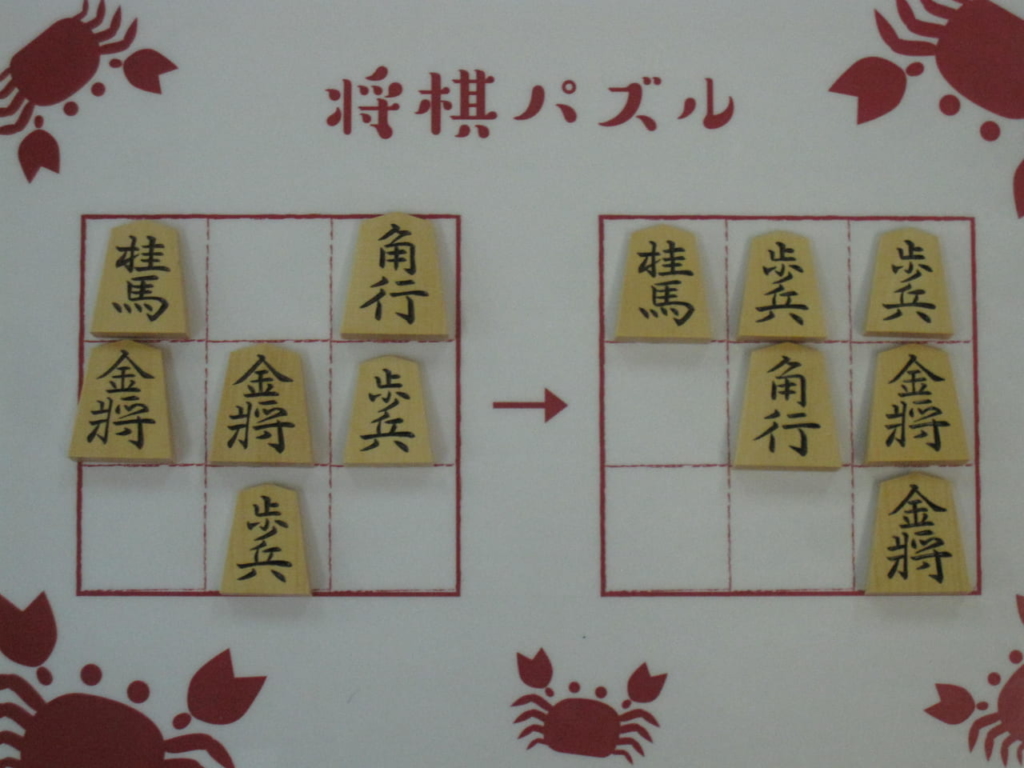 将棋パズル
桂馬 角行 桂馬 歩兵 歩兵
金將 金將 歩兵 角行 金將
歩兵 金將